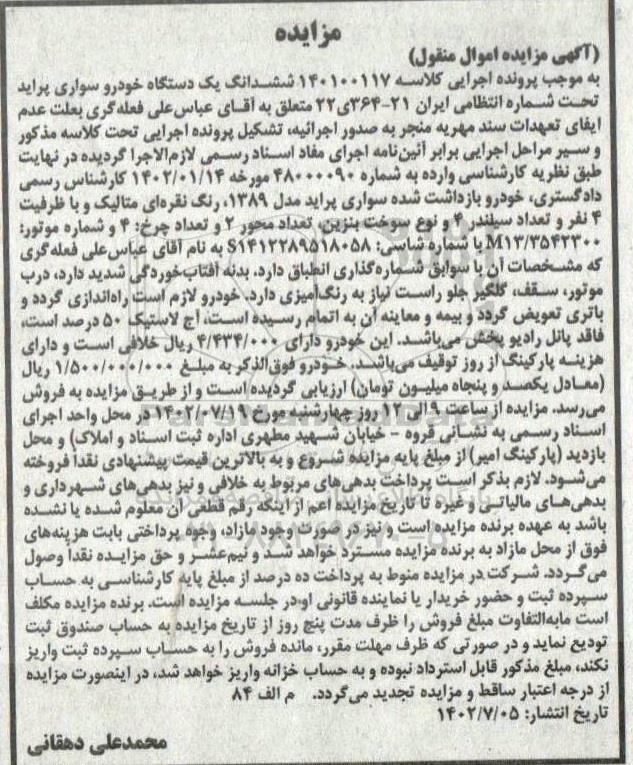 مزایده
(آگهی مزایده اموال منقول)
به موجب پرونده اجرایی کلاسه ۱۴۰۱۰۰۱۱۷ ششدانگ یک دستگاه خودرو سواری پراید
تحت شماره انتظامی ایران ۲۱-۳۶۴ی۲۲ متعلق به آقای عباس‌علی فعله‌گری بعلت عدم
ایفای تعهدات سند مهریه منجر به صدور اجرائیه، تشکیل پرونده اجرایی تحت کلاسه مذکور
و سیر مراحل اجرایی برابر آئین‌نامه اجرای مفاد اسناد رسمی لازم‌الاجرا گردیده در نهایت
طبق نظریه کارشناسی وارده به شماره ۴۸۰۰۰۰۹۰ مورخه ۱۴۰۲/۰۱/۱۴ کارشناس رسمی
دادگستری، خودرو بازداشت شده سواری پراید مدل ۱۳۸۹، رنگ نقره‌ای متالیک و با ظرفیت
۴ نفر و تعداد سیلندر ۴ و نوع سوخت بنزین، تعداد محور ۲ و تعداد چرخ: ۴ و شماره موتور:
M۱۳/۳۵۴۲۳۰۰ با شماره شاسی: S۱۴۱۲۲۸۹۵۱۸۰۵۸ به نام آقای عباس‌علی فعله‌گری
که مشخصات آن با سوابق شماره‌گذاری انطباق دارد. بدنه آفتاب‌خوردگی شدید دارد، درب
موتور، سقف، گلگیر جلو راست نیاز به رنگ‌آمیزی دارد. خودرو لازم است راه‌اندازی گردد و
باتری تعویض گردد و بیمه و معاینه آن به اتمام رسیده است، آج لاستیک ۵۰ درصد است،
فاقد پانل رادیو پخش می‌باشد. این خودرو دارای ۴/۴۳۴/۰۰۰ ریال خلافی است و دارای
هزینه پارکینگ از روز توقیف می‌باشد. خودرو فوق‌الذکر به مبلغ ۱/۵۰۰/۰۰۰/۰۰۰ ریال
(معادل یکصد و پنجاه میلیون تومان) ارزیابی گردیده است و از طریق مزایده به فروش
می‌رسد. مزایده از ساعت ۹ الی ۱۲ روز چهارشنبه مورخ ۱۴۰۲/۰۷/۱۹ در محل واحد اجرای
اسناد رسمی به نشانی قروه - خیابان شهید مطهری اداره ثبت اسناد و املاک) و محل
بازدید (پارکینگ امیر) از مبلغ پایه مزایده شروع و به بالاترین قیمت پیشنهادی نقدا فروخته
می‌شود. لازم بذکر است پرداخت بدهی‌های مربوط به خلافی و نیز بدهی‌های شهرداری و
بدهی‌های مالیاتی و غیره تا تاریخ مزایده اعم از اینکه رقم قطعی آن معلوم شده یا نشده
باشد به عهده برنده مزایده است و نیز در صورت وجود مازاد، وجوه پرداختی بابت هزینه‌های
فوق از محل مازاد به برنده مزایده مسترد خواهد شد و نیم‌عشر و حق مزایده نقدا وصول
می‌گردد. شرکت در مزایده منوط به پرداخت ده درصد از مبلغ پایه کارشناسی به حساب
سپرده ثبت و حضور خریدار یا نماینده قانونی او در جلسه مزایده است. برنده مزایده مکلف
است مابه‌التفاوت مبلغ فروش را ظرف مدت پنج روز از تاریخ مزایده به حساب صندوق ثبت
تودیع نماید و در صورتی که ظرف مهلت مقرر، مانده فروش را به حساب سپرده ثبت واریز
نکند، مبلغ مذکور قابل استرداد نبوده و به حساب خزانه واریز خواهد شد، در اینصورت مزایده
از درجه اعتبار ساقط و مزایده تجدید می‌گردد. م الف ۸۴
تاریخ انتشار: ۱۴۰۲/۷/۰۵
محمدعلی دهقانی